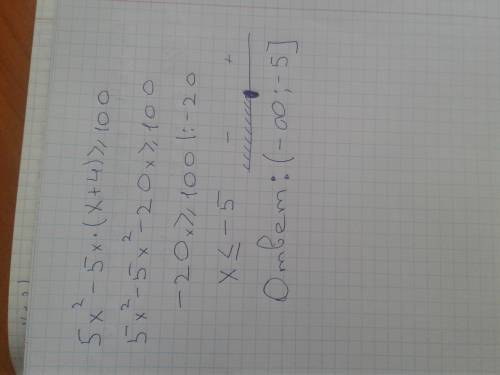 5x² - 5x·(x+4) ⩾ 100
5x² - 5x² - 20x ⩾ 100
-20x ⩾ 100 |:-20
x ≤ -5
- +
Ответ: (-∞; -5]